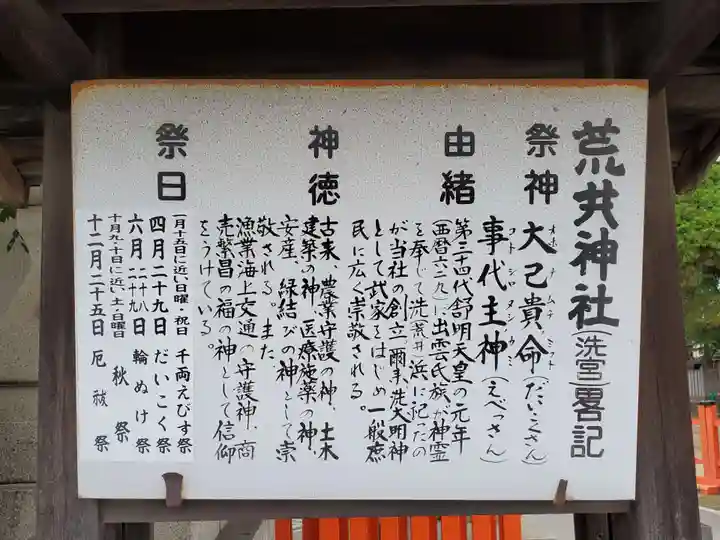 荒井神社(洗宮)畧記
祭神
大己貴命(だいこくさん)
オホナムチノミコト
事代主神(えべっさん)
コトシロヌシノカミ
由緒
第三十四代舒明天皇の元年
(西暦六二九)に出雲氏族が神霊
を奉じて洗(荒井)浜に祀ったの
が当社の創立、爾来洗大明神
として武家をはじめ一般庶
民に広く崇敬される。
神徳
古来、農業守護の神、土木
建築の神、医療施薬の神、
安産、縁結びの神として崇
敬される。また
漁業海上交通の守護神、商
売繁昌の福の神として信仰
をうけている。
祭日
一月十五日に近い日曜・祝日 千両えびす祭
四月二十九日 だいこく祭
六月二十八日二十九日 輪ぬけ祭
十月九、十日に近い土・日曜日 秋祭
十二月二十五日 厄祓祭